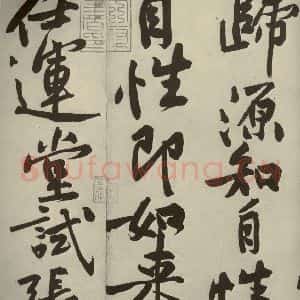 歸源知自性
自性即如来
任運堂試張
Shufawang.cn